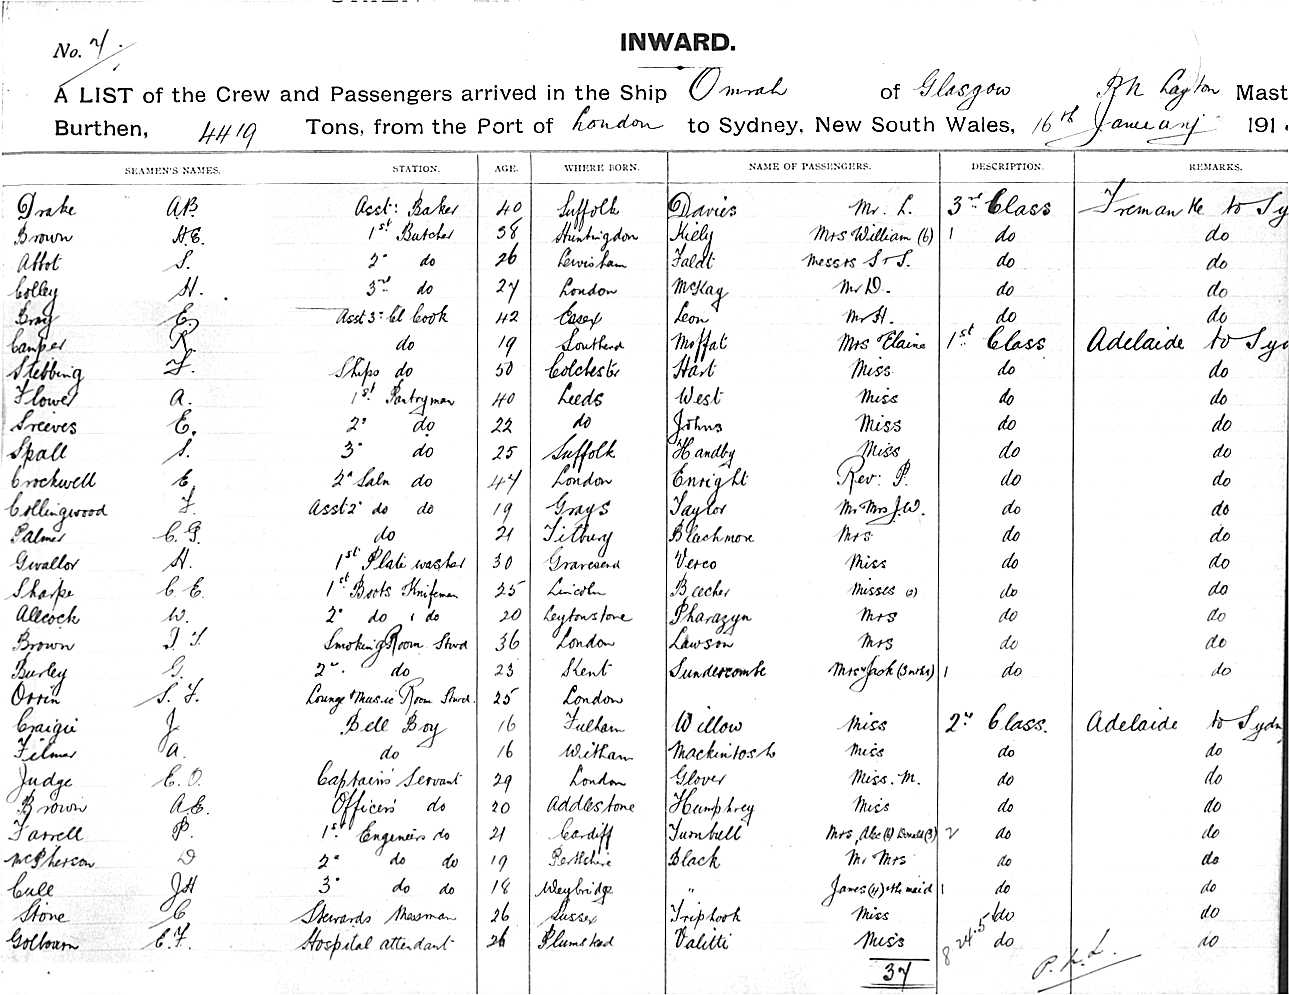 No. 7.
INWARD.
A LIST of the Crew and Passengers arrived in the Ship Omrah of Glasgow R N Layton Mast
Burthen, 4419 Tons, from the Port of London to Sydney, New South Wales, 16th January 191
SEAMEN'S NAMES. STATION. AGE. WHERE BORN. NAME OF PASSENGERS. DESCRIPTION. REMARKS.
Drake AB Asst: Baker 40 Suffolk Davies Mr. L. 3rd Class Fremantle to Sy
Brown H.E. 1st Butcher 38 Huntingdon Kiely Mrs William (6) 1 do do
Abbot S. 2" do 26 Lewisham Faldt Messrs S & S. do do
Colley H. 3rd do 27 London McKay Mr D. do do
Bray E. Asst 3rd Cl Cook 42 Essex Leon Mr H. do do
Camper R. do 19 Southend Moffat Mrs Elaine 1st Class Adelaide to Syd
Stebbing F. Ships do 50 Colchester Hart Miss do do
Flower A. 1st Pantryman 40 Leeds West Miss do do
Sreeves E. 2" do 22 do Johns Miss do do
Spall S. 3" do 25 Suffolk Handby Miss do do
Crockwell E. 2" Saln do 47 London Enright Rev: P. do do
Collingwood F. Asst 2" do do 19 Grays Taylor Mr Mrs J.W. do do
Palmer C.G. do 21 Tilbury Blackmore Mrs do do
Gwallor H. 1st Plate washer 30 Gravesend Verco Miss do do
Sharpe C E. 1st Boots Knifeman 25 Lincoln Beecher Misses (2) do do
Allcock W. 2" do & do 20 Leytonstone Pharazyn Mrs do do
Brown Smoking Room Stwd 36 London Lawson Mrs do do
Burley G. 2" do 23 Kent Sundercombe Mrs & Jack (3 mths) 1 do do
Orrin S. F. Lounge & Music Room Stwd. 25 London
Craigie J Bell Boy 16 Fulham Willow Miss 2nd Class. Adelaide to Sydn
Filmer A. do 16 Witham Mackintosh Miss do do
Judge E.O. Captain's Servant 29 London Glover Miss. M. do do
Brown A E. Officers' do 20 Addlestone Humphrey Miss do do
Farrell P. 1st Engineers do 21 Cardiff Turnbull Mrs, Alec (4) Donald (3) 2 do do
McPherson D 2" do do 19 Perthshire Black Mr Mrs do do
Cull J H 3" do do 18 Weybridge " James (4) & th maid 1 do do
Stone C Stewards Messman 26 Sussex Triphook Miss do do
Golbourn C.F. Hospital attendant 26 Plumstead Valitti Miss do do
37 8 24.5 P.L.L.